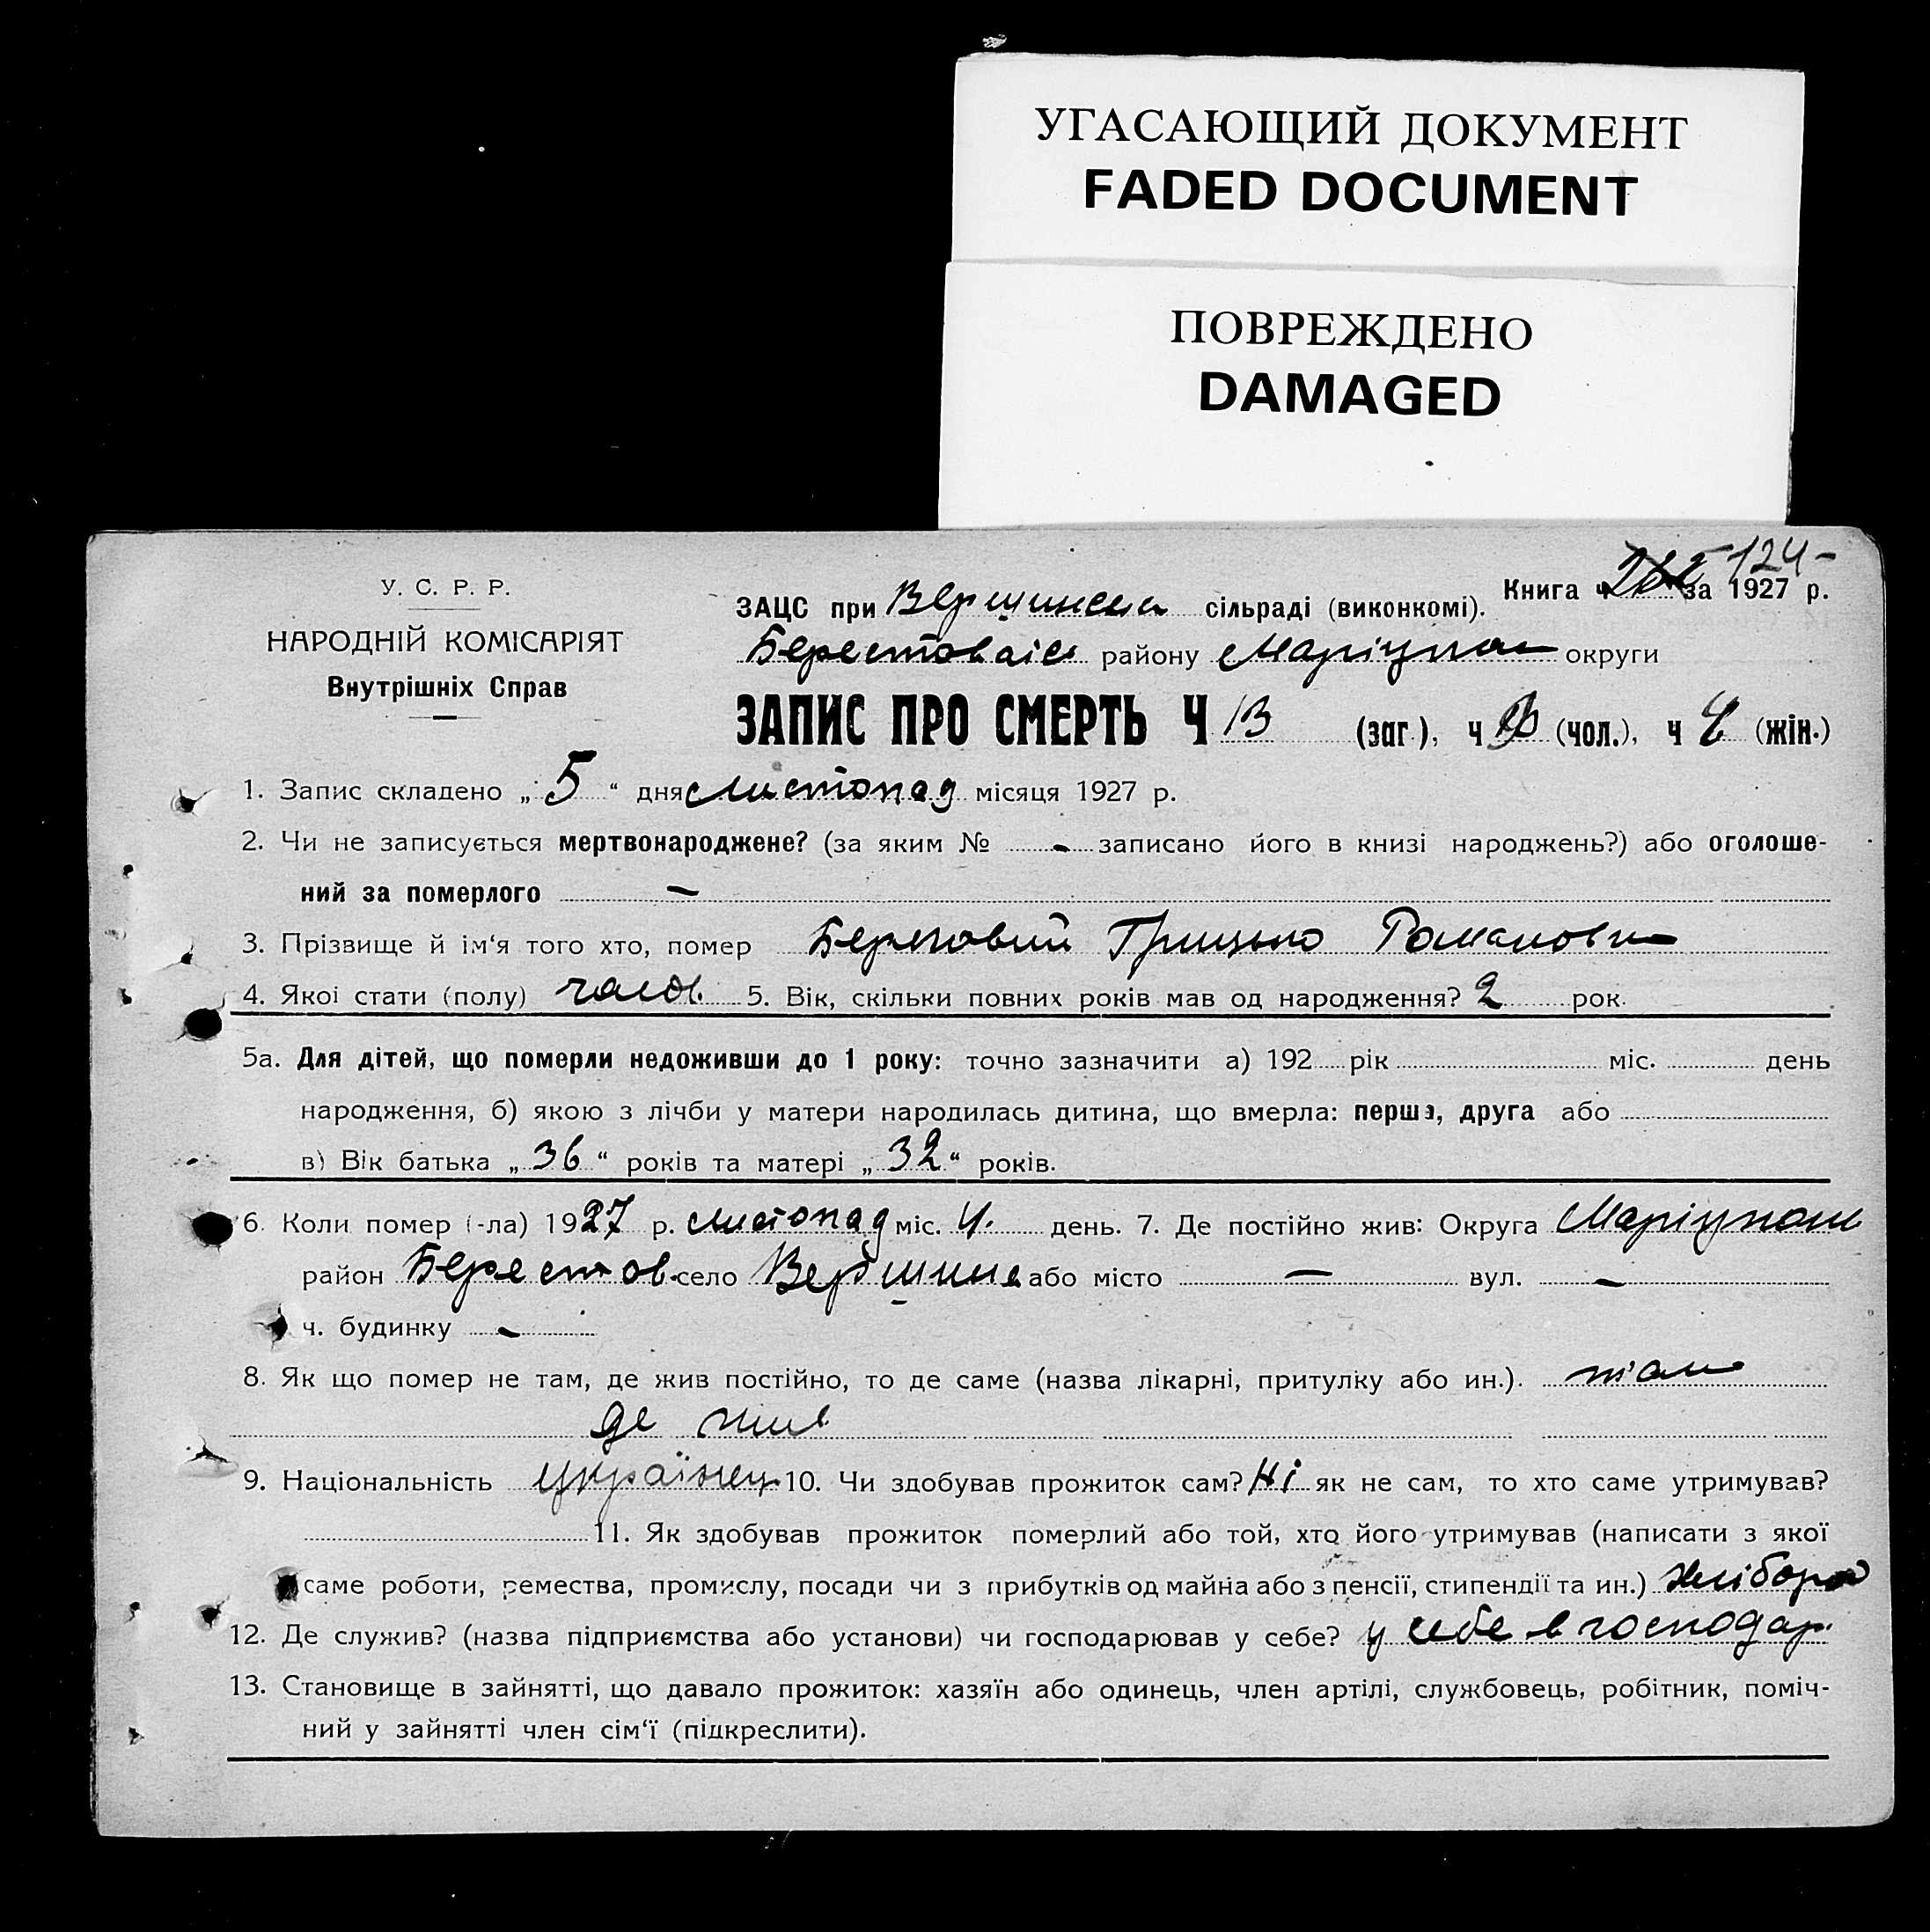 УГАСАЮЩИЙ ДОКУМЕНТ
FADED DOCUMENT
ПОВРЕЖДЕНО
DAMAGED
124
У. С. Р. Р.
НАРОДНІЙ КОМІСАРІЯТ
Внутрішніх Справ
Книга ч за 1927 р.
ЗАЦС при сільраді (виконкомі).
району Маріупол округи
ЗАПИС ПРО СМЕРТЬ Ч 13 (заг), ч (чол.), ч (жін.)
1. Запис складено „ 5 “ дня листопад місяця 1927 р.
2. Чи не записується мертвонароджене? (за яким № - записано його в книзі народжень?) або оголоше-
ний за померлого —
3. Прізвище й ім‘я того хто, помер Грицько Романови
4. Якої стати (полу) чолов. 5. Вік, скільки повних років мав од народження? 2 рок.
5а. Для дітей, що померли недоживши до 1 року: точно зазначити а) 192 рік міс. день
народження, б) якою з лічби у матери народилась дитина, що вмерла: перша, друга або
в) Вік батька „ 36 “ років та матері „ 32 “ років.
6. Коли помер (-ла) 1927 р. листопад міс. 4. день. 7. Де постійно жив: Округа Маріупол
район Берестов. село або місто — вул. -
ч. будинку -
8. Як що помер не там, де жив постійно, то де саме (назва лікарні, притулку або ин.). там
де жив
9. Національність українец 10. Чи здобував прожиток сам? Ні як не сам, то хто саме утримував?
11. Як здобував прожиток померлий або той, хто його утримував (написати з якої
саме роботи, ремества, промислу, посади чи з прибутків од майна або з пенсії, стипендії та ин.) хлібороб
12. Де служив? (назва підприємства або установи) чи господарював у себе? у себе в господар.
13. Становище в зайнятті, що давало прожиток: хазяїн або одинець, член артілі, службовець, робітник, поміч-
ний у зайнятті член сім‘ї (підкреслити).